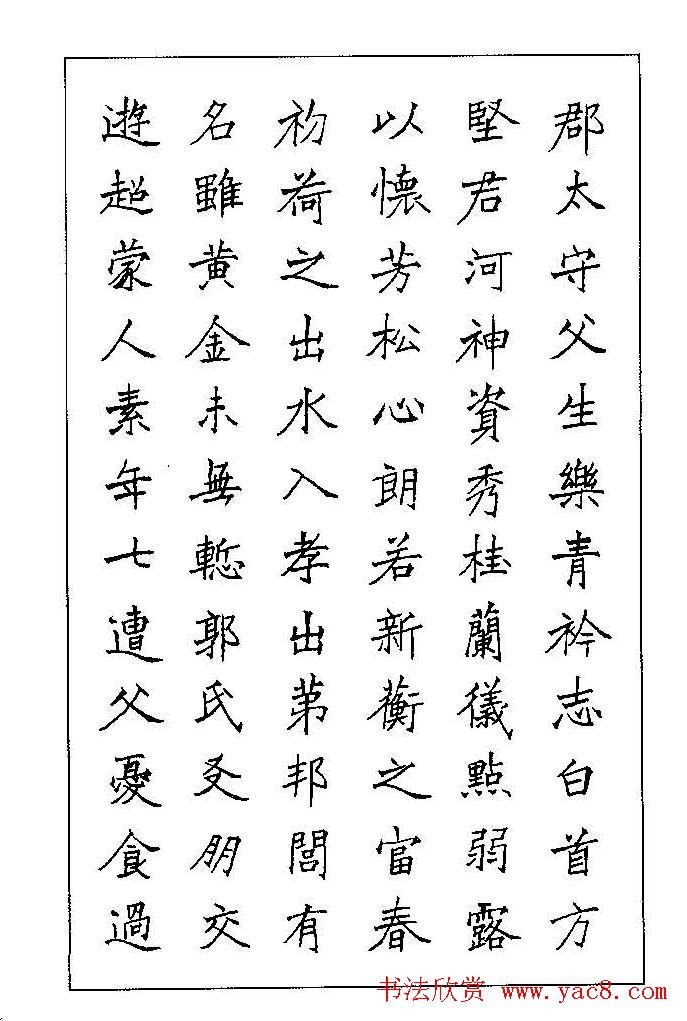 郡太守父生樂青衿志白首方
堅君河神資秀桂蘭儀點弱露
以懷芳松心朗若新蘅之當春
初荷之出水入孝出苐邦閭有
名雖黄金未無慙郭氏友朋交
遊超蒙人素年七遭父憂食過
书法欣赏 www.yac8.com